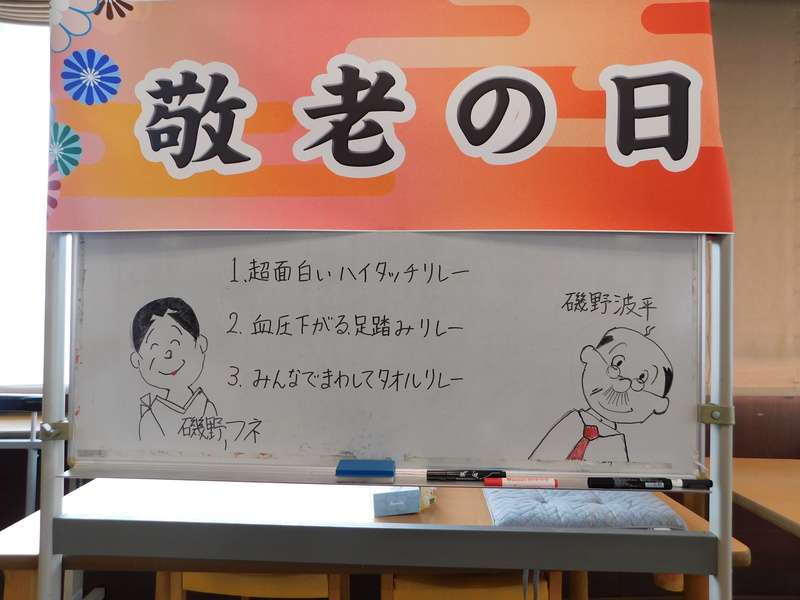 敬老の日
1.超面白いハイタッチリレー
2.血圧下がる足踏みリレー
3.みんなでまわしてタオルリレー
磯野波平
磯野フネ